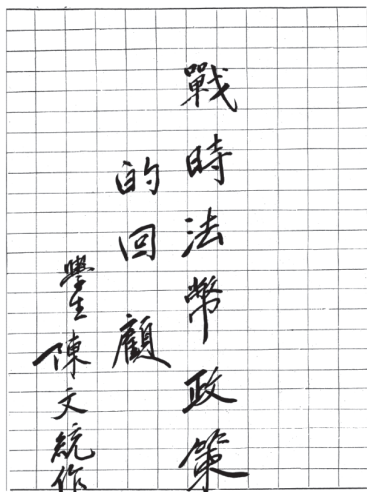 戰時法幣政策
的回顧
學生陳文統作